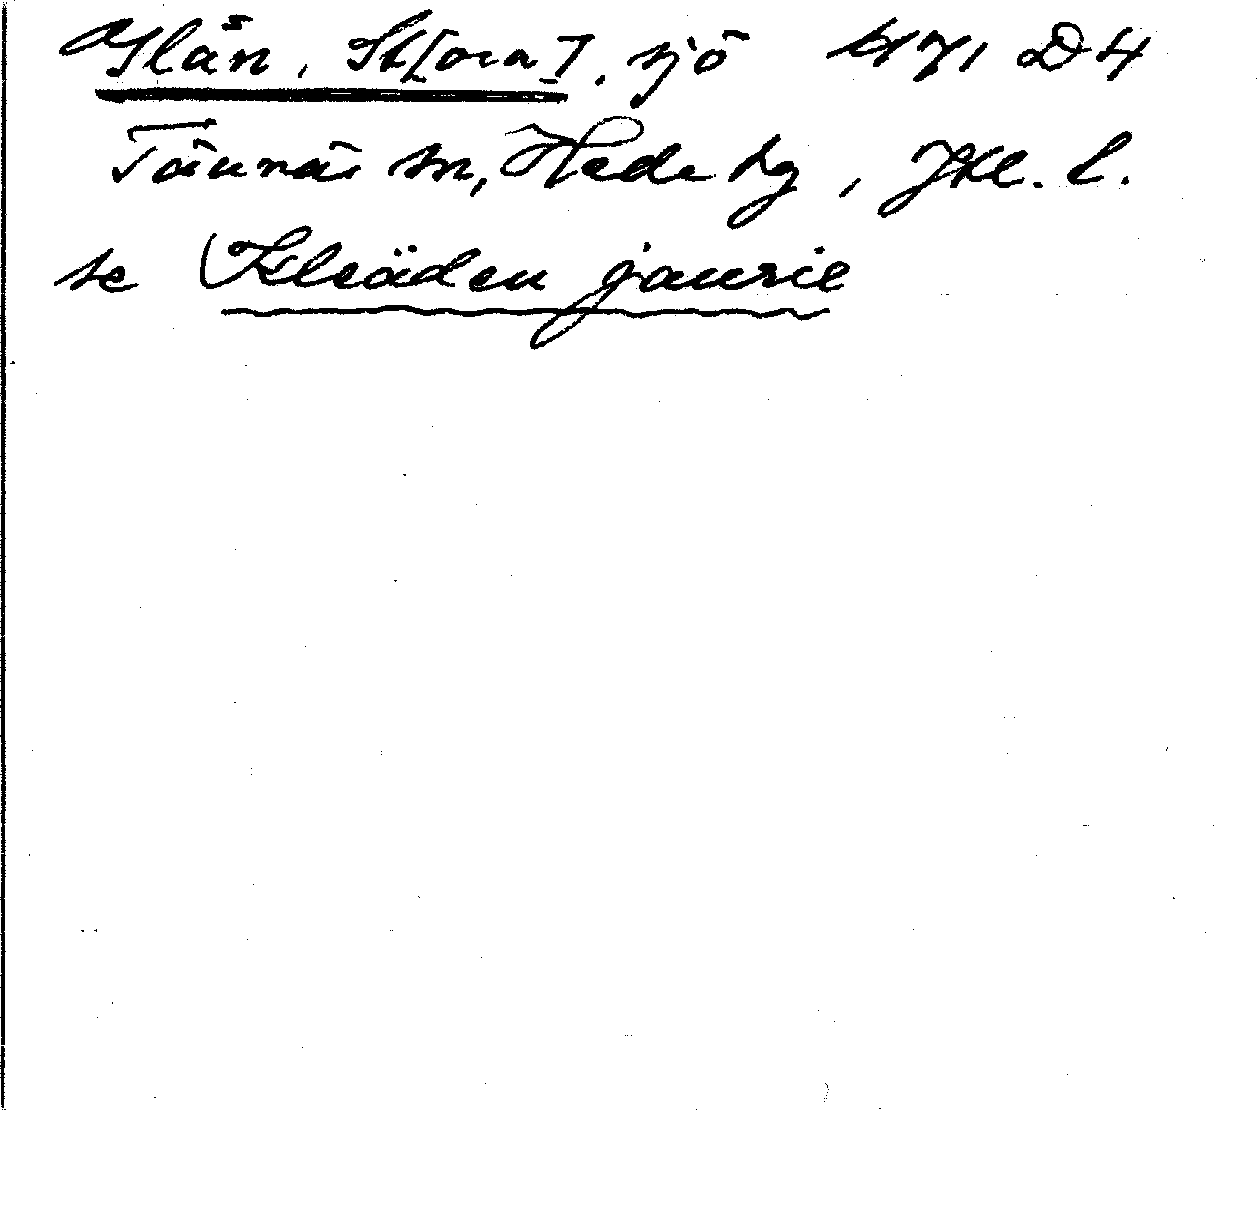 Glån, St[ora], sjö 471 D4
Tännäs sn, Hede tg, Jtl. l.
se Kleäden jaurie